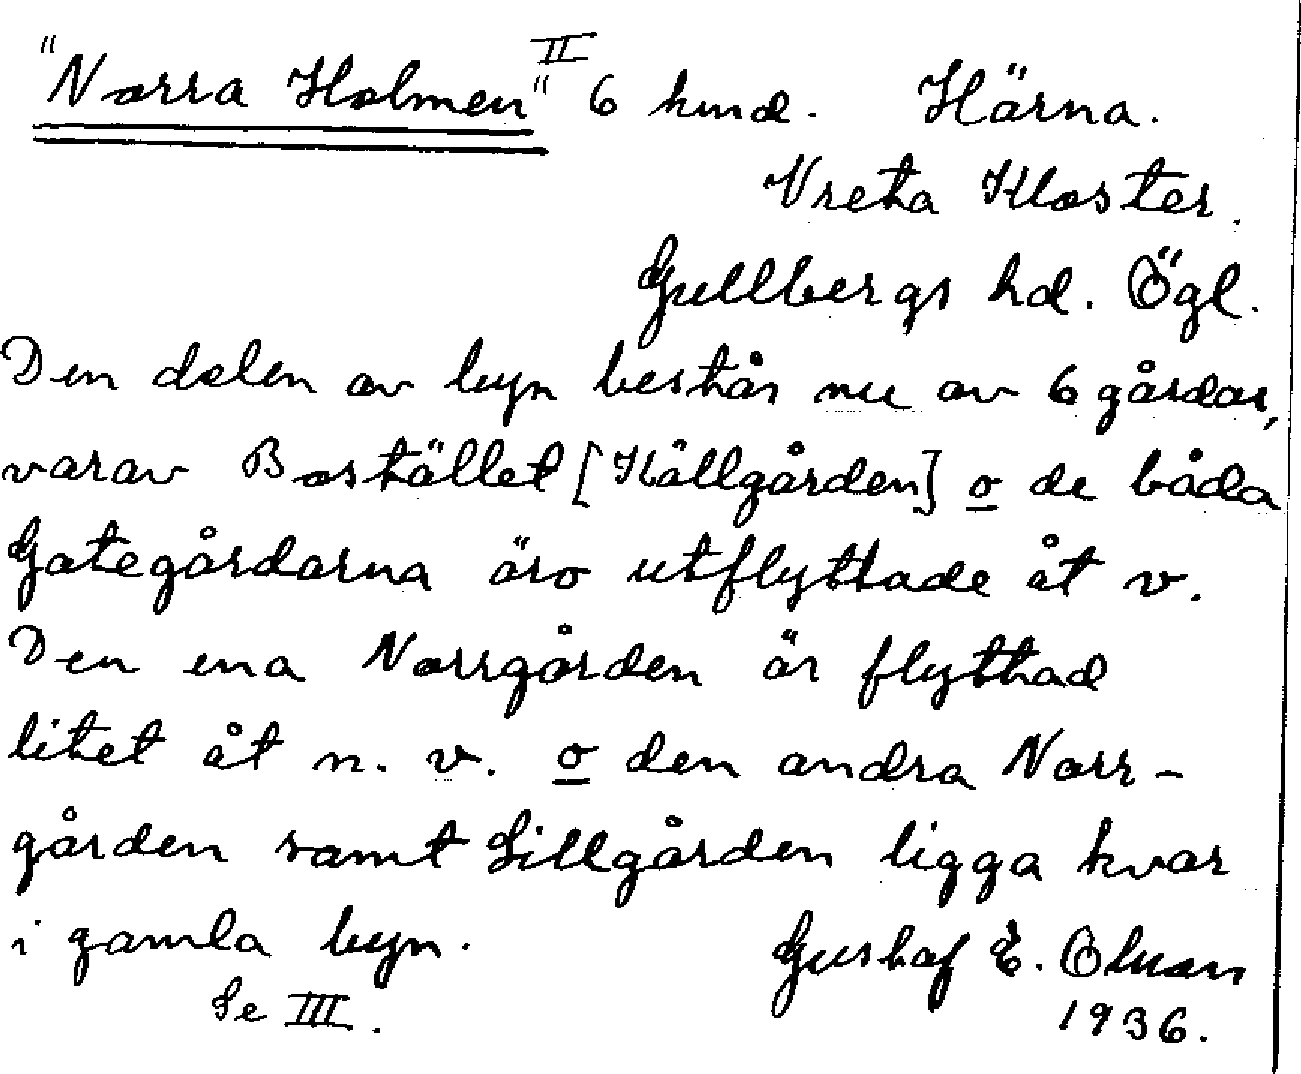 "Norra Holmen" II 6 hmd. Härna.
Vreta Kloster.
Gullbergs hd. Ögl.
Den delen av byn består nu av 6 gårdar,
varav Bostället [Källgården] o de båda
Gategårdarna äro utflyttade åt v.
Den ena Norrgården är flyttad
litet åt n. v. o den andra Norr-
gården samt Lillgården ligga kvar
i gamla byn. Gustaf E. Olson
Se III. 1936.